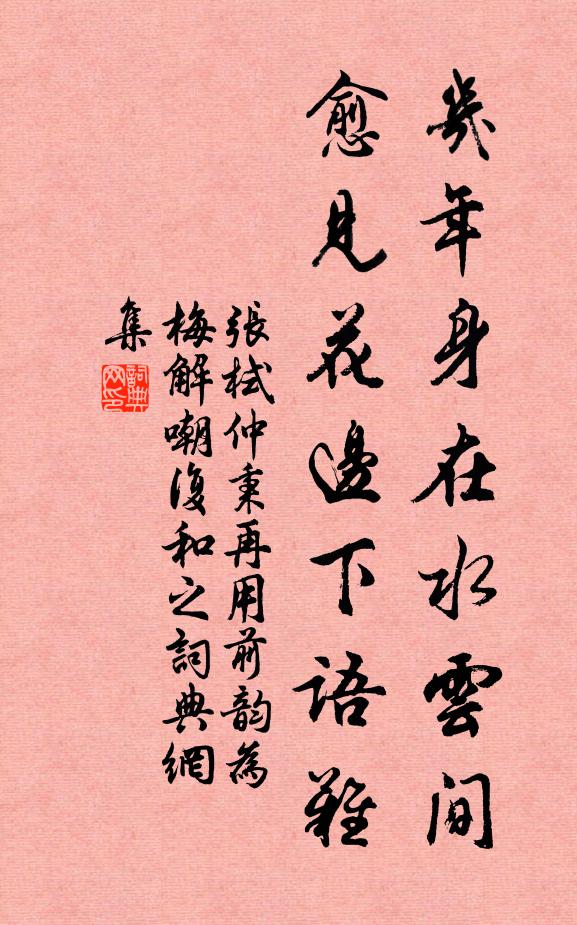 幾年身在水雲間
愈見花邊下語難
張栻仲秉再用前韵為
梅解嘲復和之詞典網
集
詞典網印